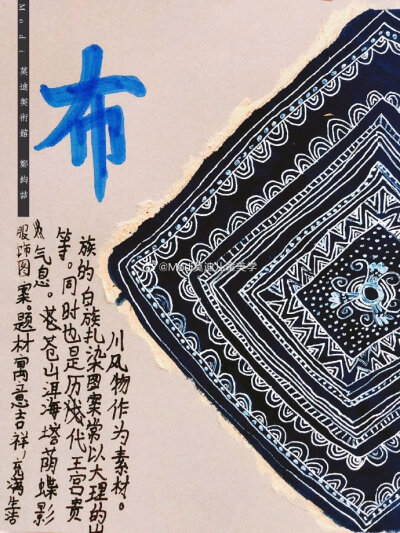 Modi 莫迪美術館
布
服饰图案。题材寓意吉祥，充满生活
气息。苍苍山洱海塔荫蝶影
等。同时也是历戏代王宫贵
族的白族扎染图案常以大理的山
川风物作为素材。